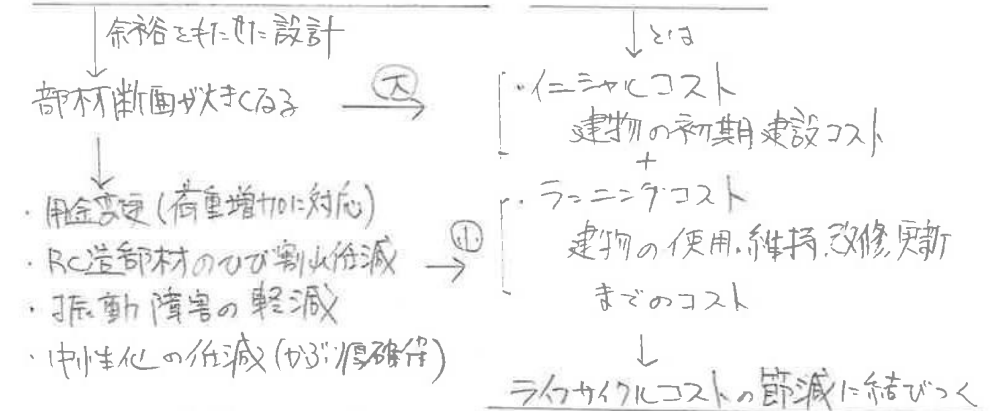 余裕をもたせた設計
部材断面が大きくなる
大
・用途変更(荷重増加に対応)
・RC造部材のひび割れ低減
・振動障害の軽減
・中性化の低減(かぶり厚確保)
小
とは
・イニシャルコスト
建物の初期建設コスト
+
・ランニングコスト
建物の使用、維持、改修、更新
までのコスト
ライフサイクルコストの節減に結びつく